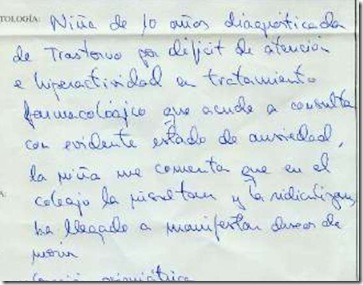 TOLOGÍA: Niña de 10 años diagnosticada
de Trastorno por déficit de atención
e hiperactividad en tratamiento
farmacológico que acude a consulta
con evidente estado de ansiedad,
la niña me comenta que en el
colegio la insultan y la ridiculizan,
ha llegado a manifestar deseos de
morir